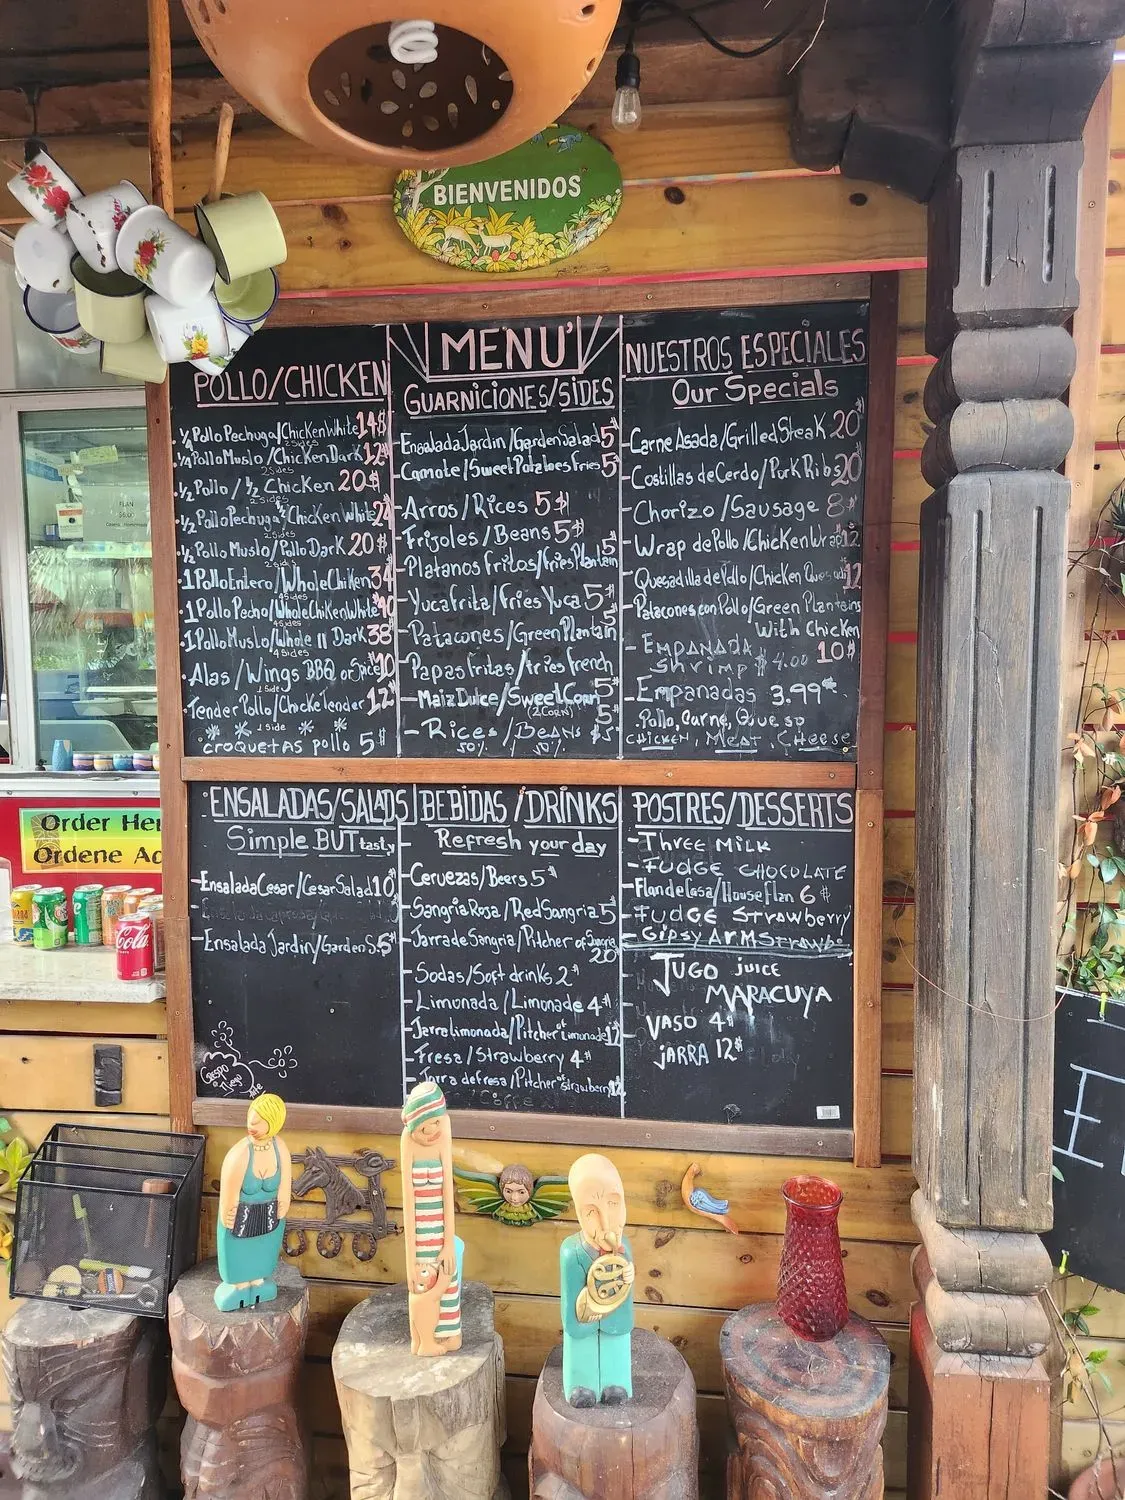 BIENVENIDOS
MENU'
POLLO/CHICKEN
1/4 Pollo Pechuga/Chicken White 14$
2 Sides
1/4 Pollo Muslo/Chicken Dark 12$
2 Sides
1/2 Pollo/1/2 Chicken 20$
2 Sides
1/2 Pollo Pechuga/Chicken White 24
2 Sides
1/2 Pollo Muslo/Pollo Dark 20$
1 Pollo Entero/Whole Chiken 34
4 Sides
1 Pollo Pecho/Whole Chiken White 40
4 Sides
1 Pollo Muslo/Whole 11 Dark 38$
4 Sides
Alas/Wings BBQ or Spice 10
1 Side
Tender Pollo/Chicke Tender 12$
1 Side
CROQUETAS pollo 5$
GUARNICIONES/SIDES
Ensalada Jardin/Garden Salad 5$
Camote/Sweet Potatoes Fries 5$
Arros/Rices 5$
Frijoles/Beans 5$
Platanos fritos/fries Plantain 5$
Yuca frita/Fries Yuca 5$
Patacones/Green Plantain 5$
Papas fritas/fries french
Maiz Dulce/Sweet Corn 5$
(2 CORN)
Rices/Beans $5
50% 50%
NUESTROS ESPECIALES
Our Specials
Carne Asada/Grilled Steak 20$
Costillas de Cerdo/Pork Ribs 20$
Chorizo/Sausage 8$
Wrap de Pollo/Chicken Wrap 12
Quesadilla de Pollo/Chicken 12
Patacones con Pollo/Green Plantains
With Chicken 10$
EMPANADA
Shrimp $4.00
Empanadas 3.99
Pollo, Carne, Queso
CHICKEN, MEAT, CHEESE
ENSALADAS/SALADS
Simple BUT tasty
Ensalada Cesar/Cesar Salad 10$
Ensalada Jardin/Garden S. 5$
BEBIDAS/DRINKS
Refresh your day
Cervezas/Beers 5$
Sangria Roja/Red Sangria 5$
Jarra de Sangria/Pitcher of Sangria
20$
Sodas/Soft drinks 2$
Limonada/Limonade 4$
Jarra limonada/Pitcher of Limonade 12
Fresa/Strawberry 4$
Jarra de fresa/Pitcher of Strawberry 12
POSTRES/DESSERTS
Three MILK
FUDGE CHOCOLATE
Flan de Casa/House Flan 6$
FUDGE Strawberry
Gipsy Arm Strawb
JUGO juice
MARACUYA
VASO 4$
jARRA 12$
Order Her
Ordene Aq
Cola
FLAN